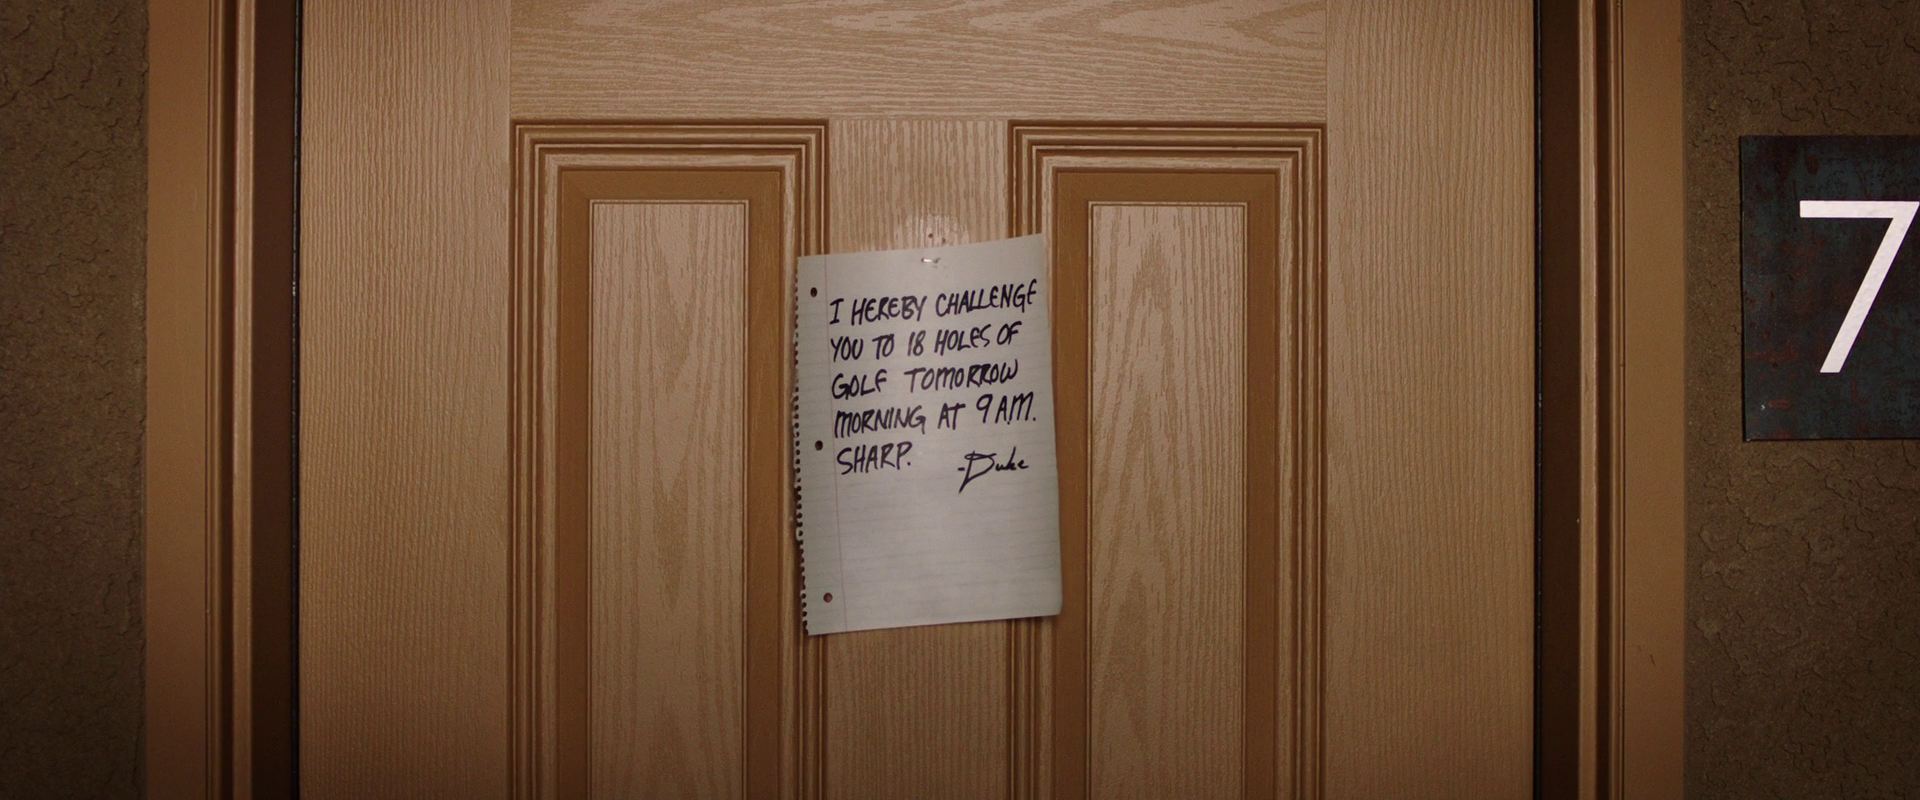 I HEREBY CHALLENGE
YOU TO 18 HOLES OF
GOLF TOMORROW
MORNING AT 9 A.M.
SHARP.
-Duke
7